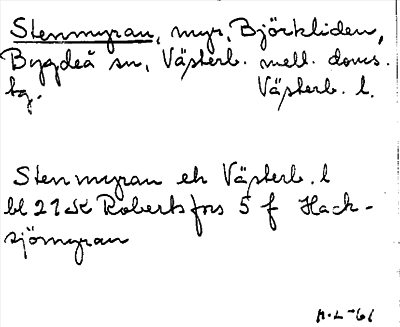 Stenmyran, myr, Björkliden,
Bygdeå sn, Västerb. mell. doms.
tg. Västerb. l.
Stenmyran ek Västerb. l
bl 21 SK Robertsfors 5 f Hack-
sjömyran
A.L-61